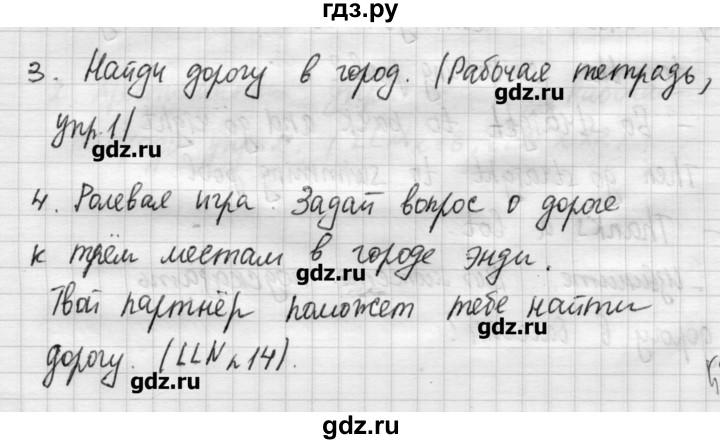 гдз.ру
3. Найди дорогу в город. (Рабочая тетрадь,
gdz.ru
упр.1)
gdz.ru
4. Ролевая игра. Задай вопрос о дороге
gdz.ru
к трём местам в городе Энди.
gdz.ru
Твой партнёр поможет тебе найти
gdz.ru
дорогу. (LLN 14).
gdz.ru
gdz.ru